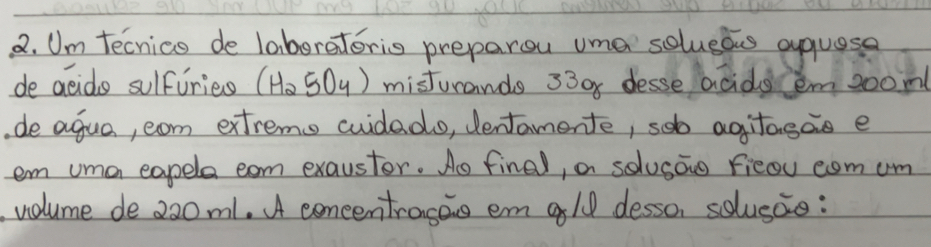 2. Um Técnico de laboratório preparou uma solução aquosa
de ácido sulfúrico (H2SO4) misturando 33g desse ácido em 200ml
de água, com extremo cuidado, lentamente, sob agitação e
em uma capela com exaustor. Ao final, a solução ficou com um
volume de 220ml. A concentração em g/l dessa solução: